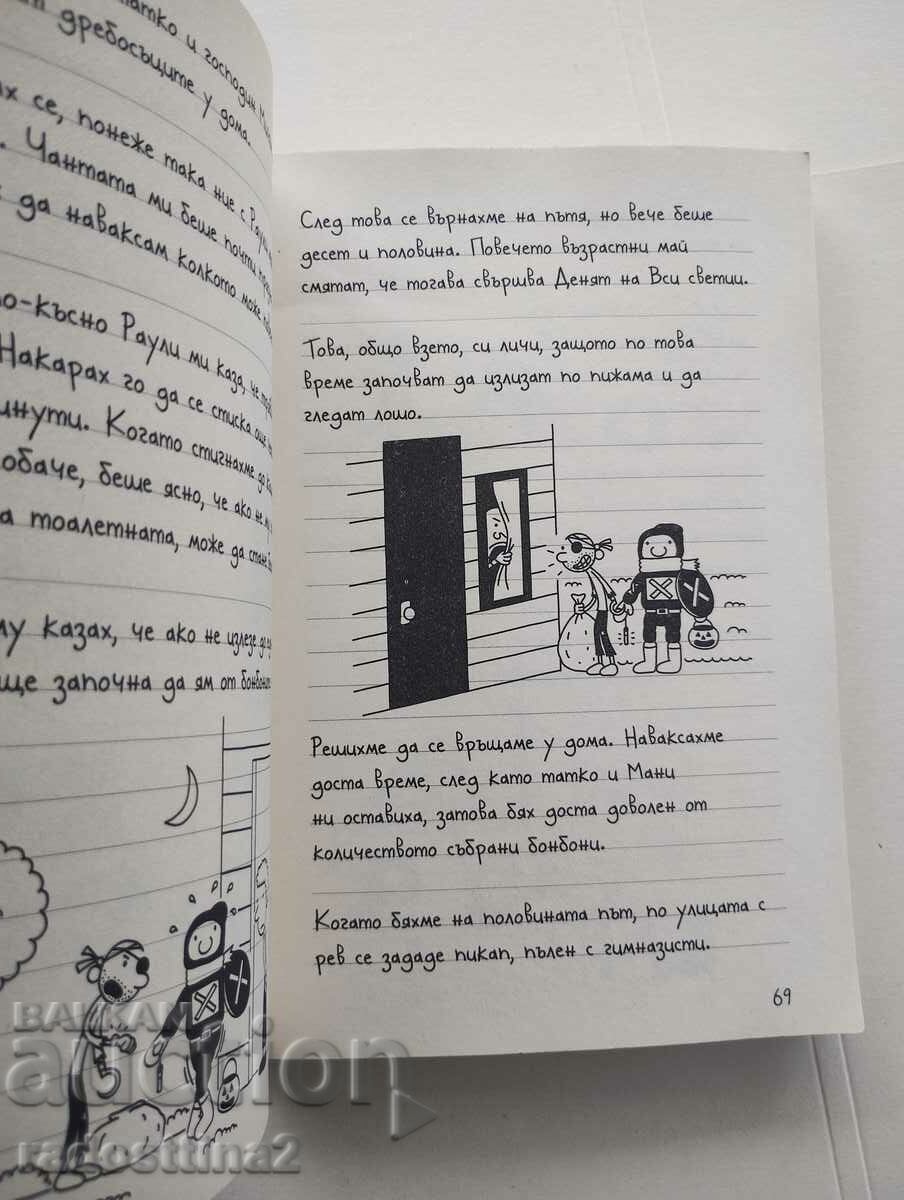 татко и господин
дребосъците у дома.
се, понеже така ние с
Чантата ми беше почти
да наваксам колкото може
Раули ми каза, че
Накарах го да се стиска още
Когато стигнахме до
обаче, беше ясно, че ако не
тоалетната, може да
казах, че ако не излезе
ще започна да ям от
След това се върнахме на пътя, но вече беше
десет и половина. Повечето възрастни май
смятат, че тогава свършва Денят на Вси светии.
Това, общо взето, си личи, защото по това
време започват да излизат по пижама и да
гледат лошо.
Решихме да се връщаме у дома. Наваксахме
доста време, след като татко и Мани
ни оставиха, затова бях доста доволен от
количеството събрани бонбони.
Когато бяхме на половината път, по улицата с
рев се зададе пикап, пълен с гимназисти.
69
БАЛКАН
auction
radosttina2